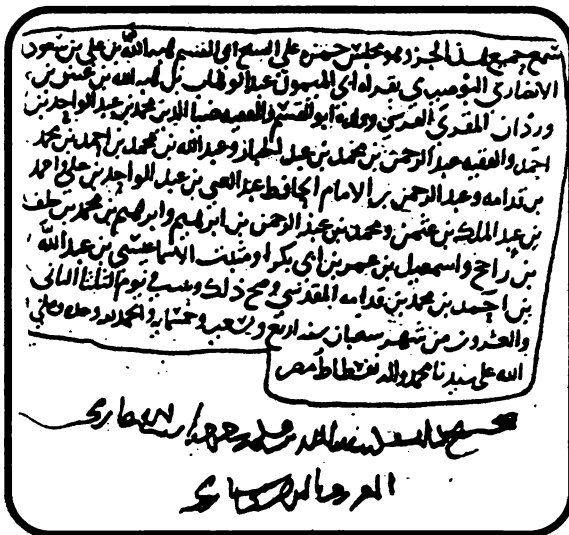 سمع جميع هذا الجزء وهو مجلس حمزة على الشيخ ابي القسم هبه الله بن علي بن مسعود
الانصاري البوصيري بقراه ابي الميمون عبد الوهاب بن عتيق بن
وردان المقري ابو القسم والفقيه ضيا الدين محمد بن عبد الواحد بن
احمد والفقيه عبد الرحمن بن محمد بن عبد الجبار وعبد الله بن محمد بن احمد بن محمد
بن قدامه وعبد الرحمن بن الامام الحافظ عبد الغني بن عبد الواحد بن علي واحمد
بن عبد الملك بن عثمن ومحمد بن عبد الرحمن بن ابرهيم وابرهيم بن محمد بن خلف
بن راجح واسمعيل بن عمر بن ابي بكر ومثبت الاسما عيسى بن عبد الله
بن احمد بن محمد بن قدامه المقدسي وصح ذلك وثبت في يوم الثلثا الثاني
والعشرون من شهر شعبان سنه اربع وتسعين وخمسمايه والحمد لله وحده وصلى
الله على سيدنا محمد واله بفسطاط مصر